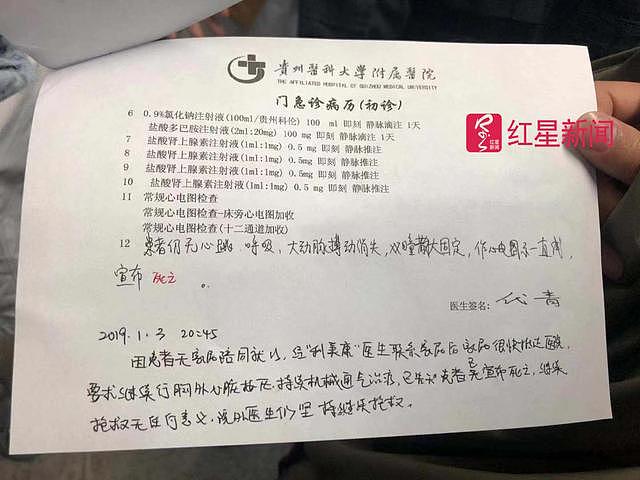 貴州醫科大學附属醫院
THE AFFILIATED HOSPITAL OF GUIZHOU MEDICAL UNIVERSITY
门急诊病历(初诊)
6 0.9%氯化钠注射液(100ml/贵州科伦) 100 ml 即刻 静脉滴注 1天
盐酸多巴胺注射液(2ml:20mg) 100 mg 即刻 静脉滴注 1天
7 盐酸肾上腺素注射液(1ml:1mg) 0.5 mg 即刻 静脉推注
8 盐酸肾上腺素注射液(1ml:1mg) 0.5 mg 即刻 静脉推注
9 盐酸肾上腺素注射液(1ml:1mg) 0.5mg 即刻 静脉推注
10 盐酸肾上腺素注射液(1ml:1mg) 0.5 mg 即刻 静脉推注
11 常规心电图检查
常规心电图检查-床旁心电图加收
常规心电图检查(十二通道加收)
红星新闻
红星
新闻
12 患者仍无心跳、呼吸,大动脉搏动消失,双瞳散大固定,作心电图示一直线,
宣布死亡。
医生签名: 代青
2019.1.3 20:45
因患者无家属陪同就诊,经"利美康"医生联系家属后家属很快抵达医院,
要求继续行胸外心脏按压,持续机械通气治疗,已告知患者已宣布死亡,继续
抢救无任何意义,院外医生们坚持继续抢救.